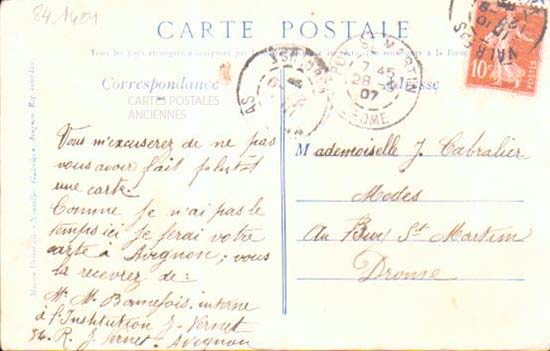 84.1401
CARTE POSTALE
Correspondance
Adresse
CARTES POSTALES
ANCIENNES
Vous m'excuserez de ne pas
vous avoir fait plutôt
une carte.
Comme je n'ai pas le
temps ici je ferai votre
carte à Avignon; vous
la recevrez de:
Mr M. Bonnefois, interne
à l'Institution J-Vernet
R. J. Vernet. Avignon
Mademoiselle J. Cabralier
Modes
au Buy St Martin
Drome
MARTIN
7 45
28
07
DROME
VALREAS
10c
POSTES